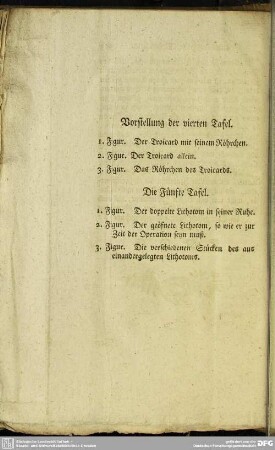 Vorstellung der vierten Tafel.
1. Figur. Der Troicard mit seinem Röhrchen.
2. Figur. Der Troicard allein.
3. Figur. Das Röhrchen des Troicards.
Die Fünfte Tafel.
1. Figur. Der doppelte Lithotom in seiner Ruhe.
2. Figur. Der geöfnete Lithotom, so wie er zur
Zeit der Operation seyn muß.
3. Figur. Die verschiedenen Stücken des aus
einandergelegten Lithotoms.